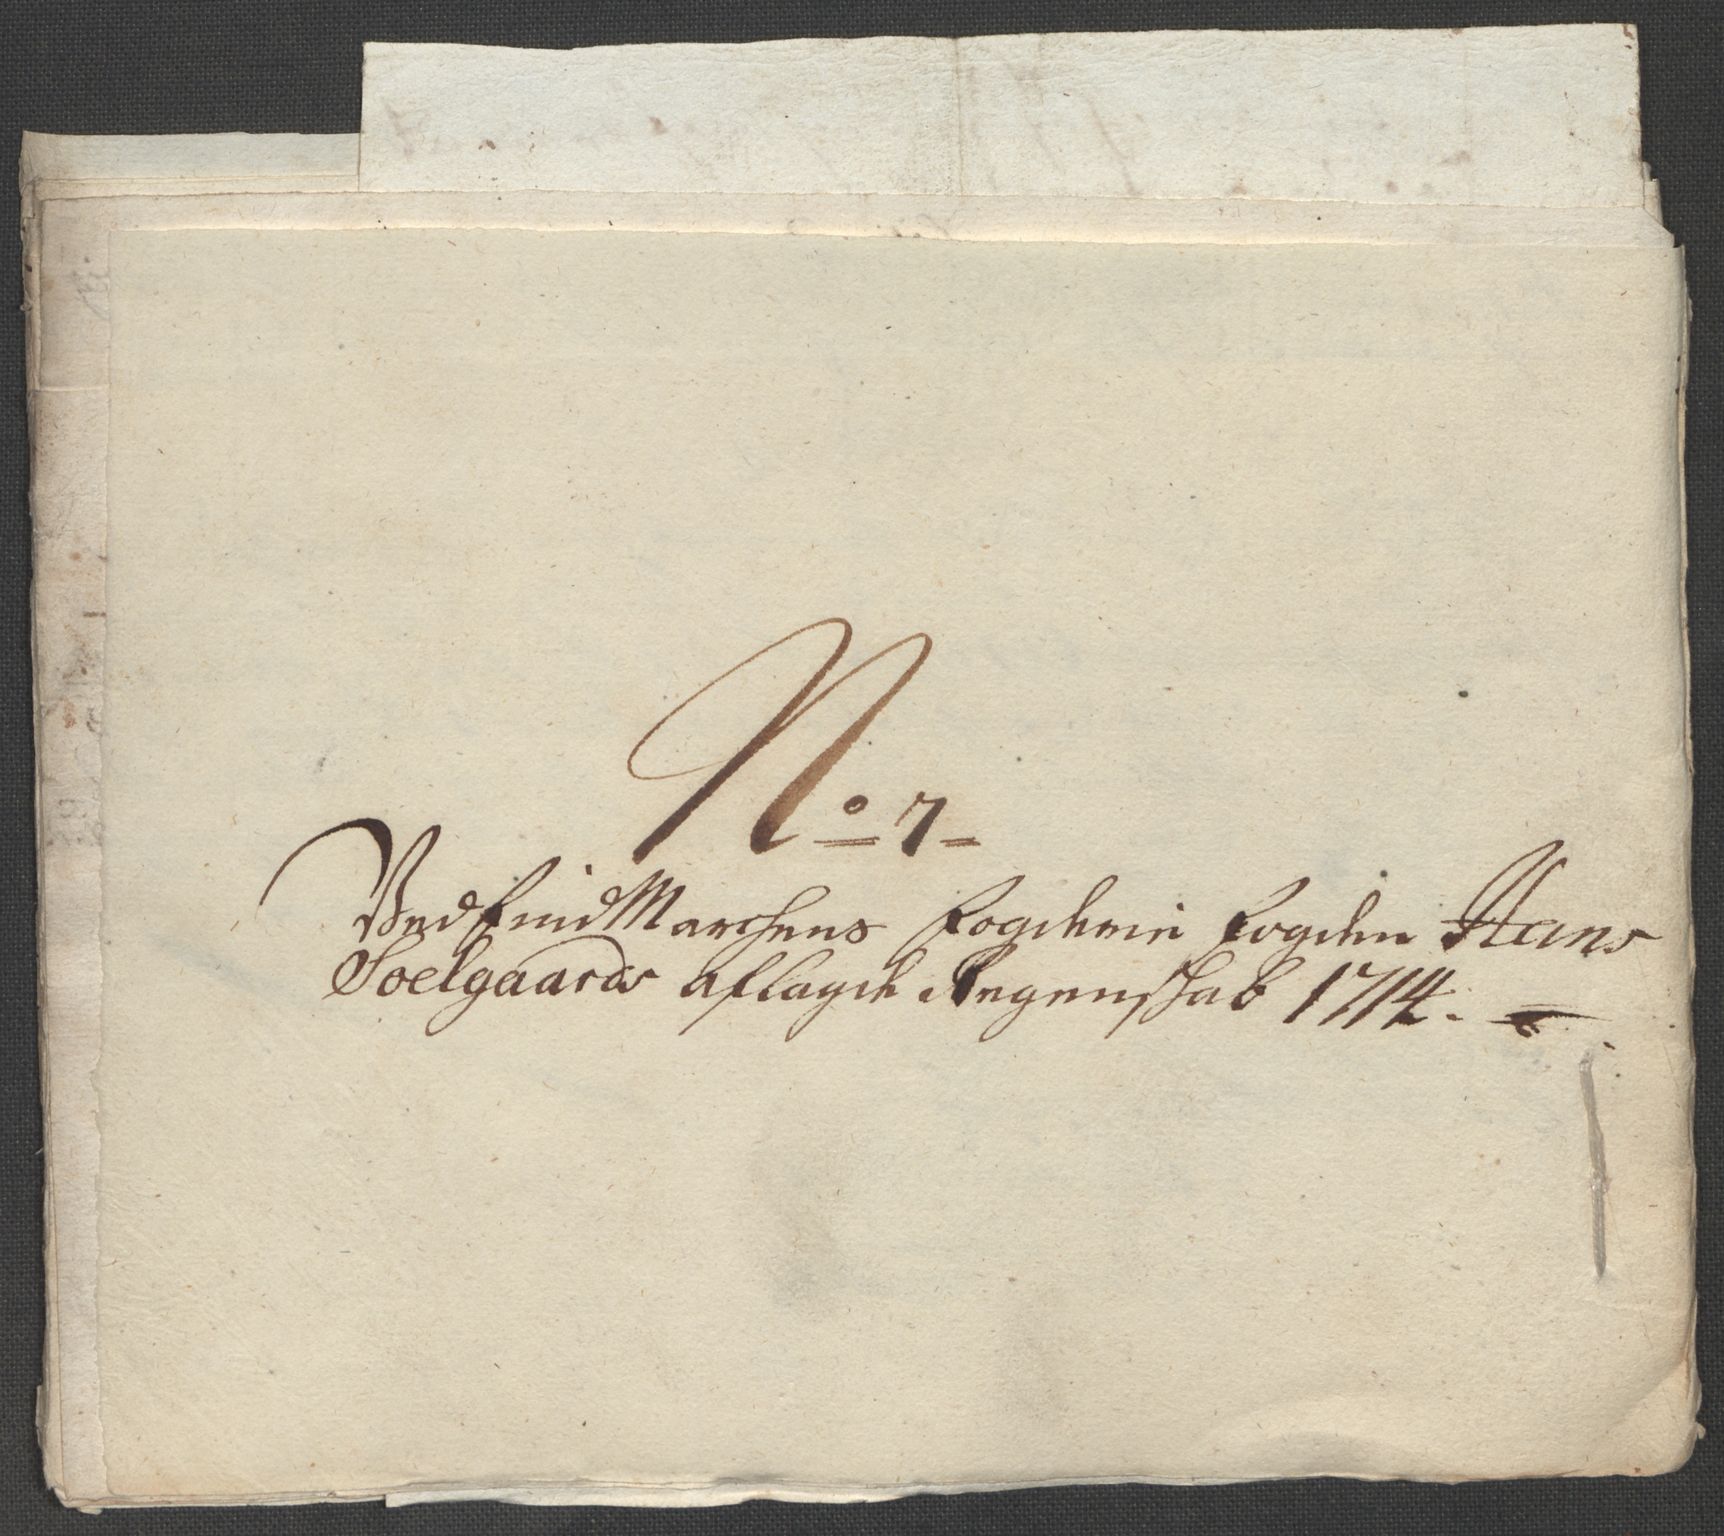 No 7
Ved FindMarchens Fogderie Fogden Hans
Soelgaards aflagde Regenskab 1714.